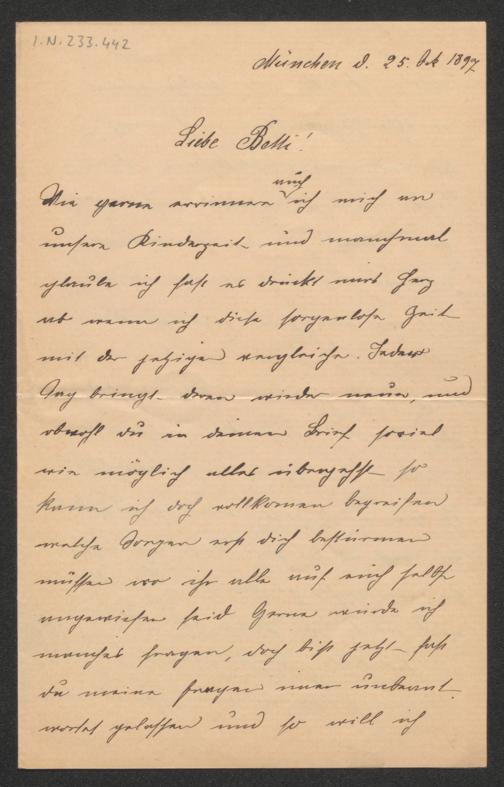 I.N. 233.442
München d. 25. Okt 1897
Liebe Betti!
auch
Wie gerne errinnere ich mich an
unsere Kinderzeit und manchmal
glaube ich fast es drückt mirs Herz
ab wenn ich diese sorgenlose Zeit
mit der jetzigen vergleiche. Jeder
Tag bringt deren wieder neue, und
obwohl du in deinem Brief soviel
wie möglich alles übergehst so
kann ich doch vollkomen begreifen
welche Sorgen erst dich bestürmen
müssen wo ihr alle auf euch selbst
angewiesen seid Gerne würde ich
manches fragen, doch bist jetzt hast
du meine fragen imer unbeant-
wortet gelassen und so will ich